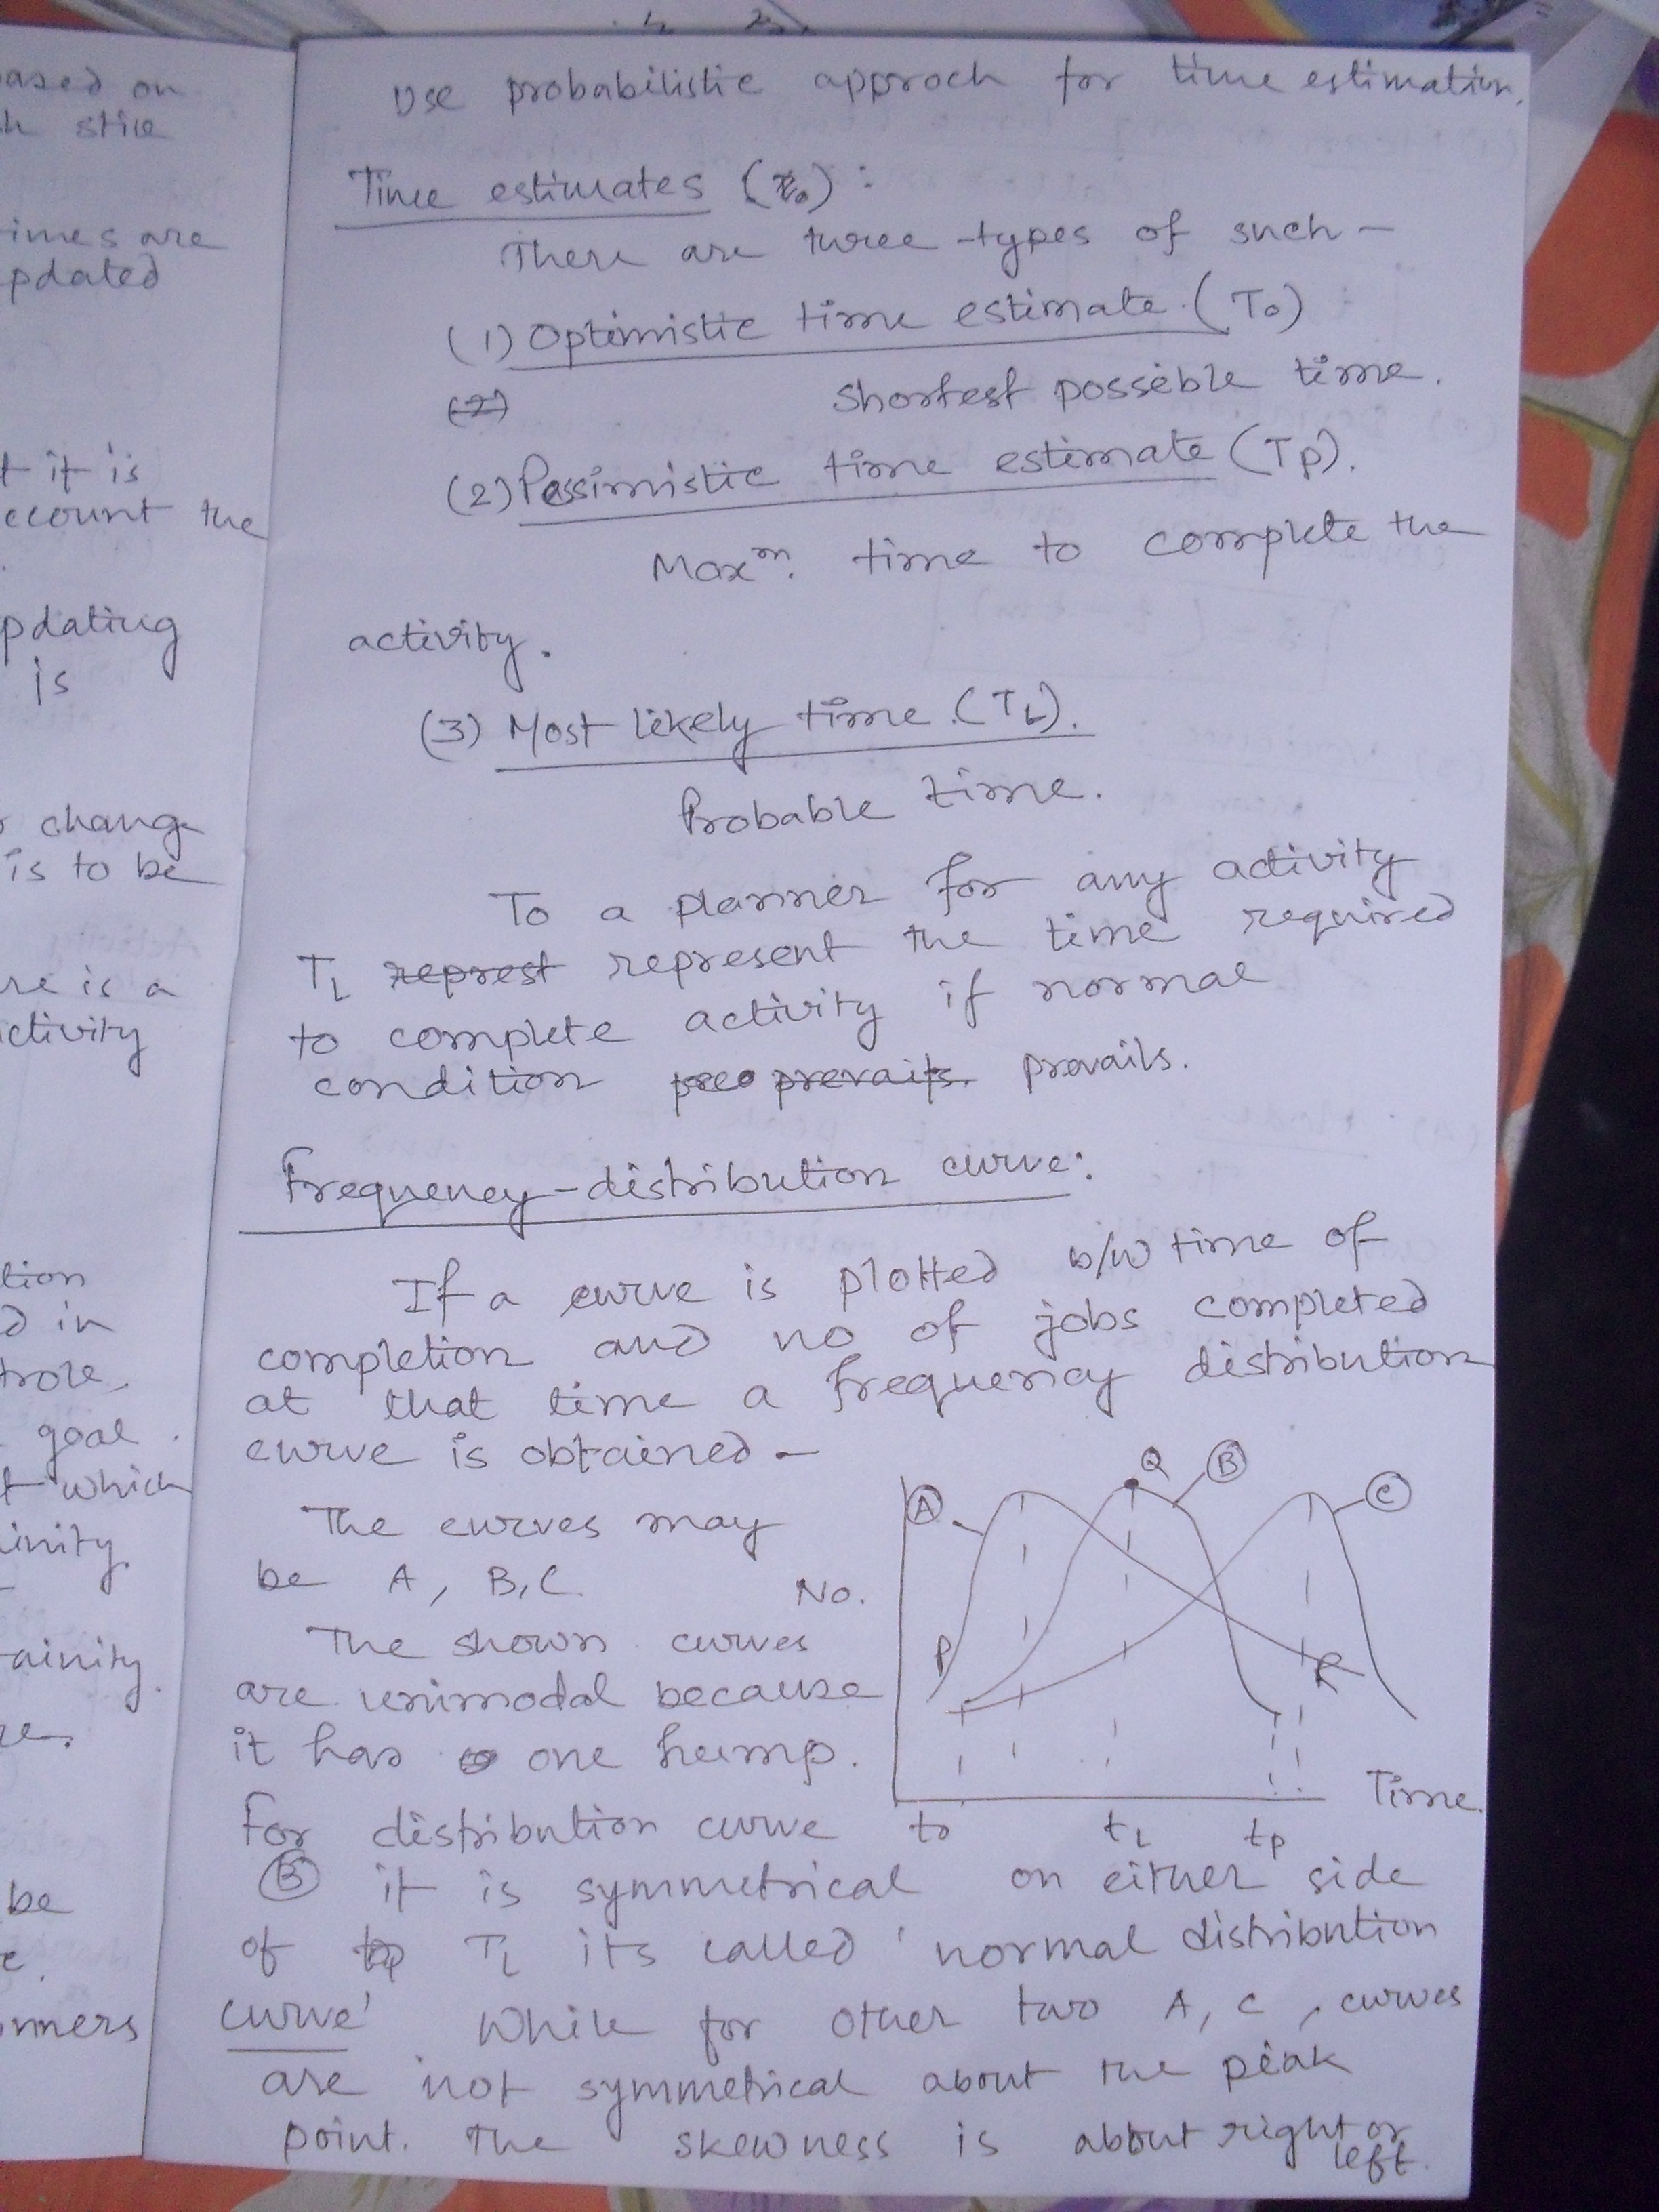 ased on
h stice
imes are
pdated
t it is
ccount the
pdating
is
change
is to be
re is a
ctivity
tion
d in
trole,
goal.
t which
inity.
tainity.
re.
be
e.
nners
Use probabilistic approch for time estimation.
Time estimates (to):
There are three types of such -
(1) Optimistic time estimate. (To)
(2) Shortest possible time.
(2) Passimistic time estimate (Tp).
Maxm. time to complete the
activity.
(3) Most likely time. (TL).
Probable time.
To a planner for any activity
TL represt represent the time required
to complete activity if normal
condition preo prevails. prevails.
Frequency-distribution curve:
If a curve is plotted b/w time of
completion and no of jobs completed
at that time a frequency distribution
curve is obtained -
The curves may
be A, B, C.
The shown curves
are unimodal because
it has one hump.
A
Q
B
C
No.
P
R
Time.
to tL tp
For distribution curve
B it is symmetrical on either side
of TL its called 'normal distribution
curve' While for other two A, C, curves
are not symmetrical about the peak
point. The skewness is about right or
left.